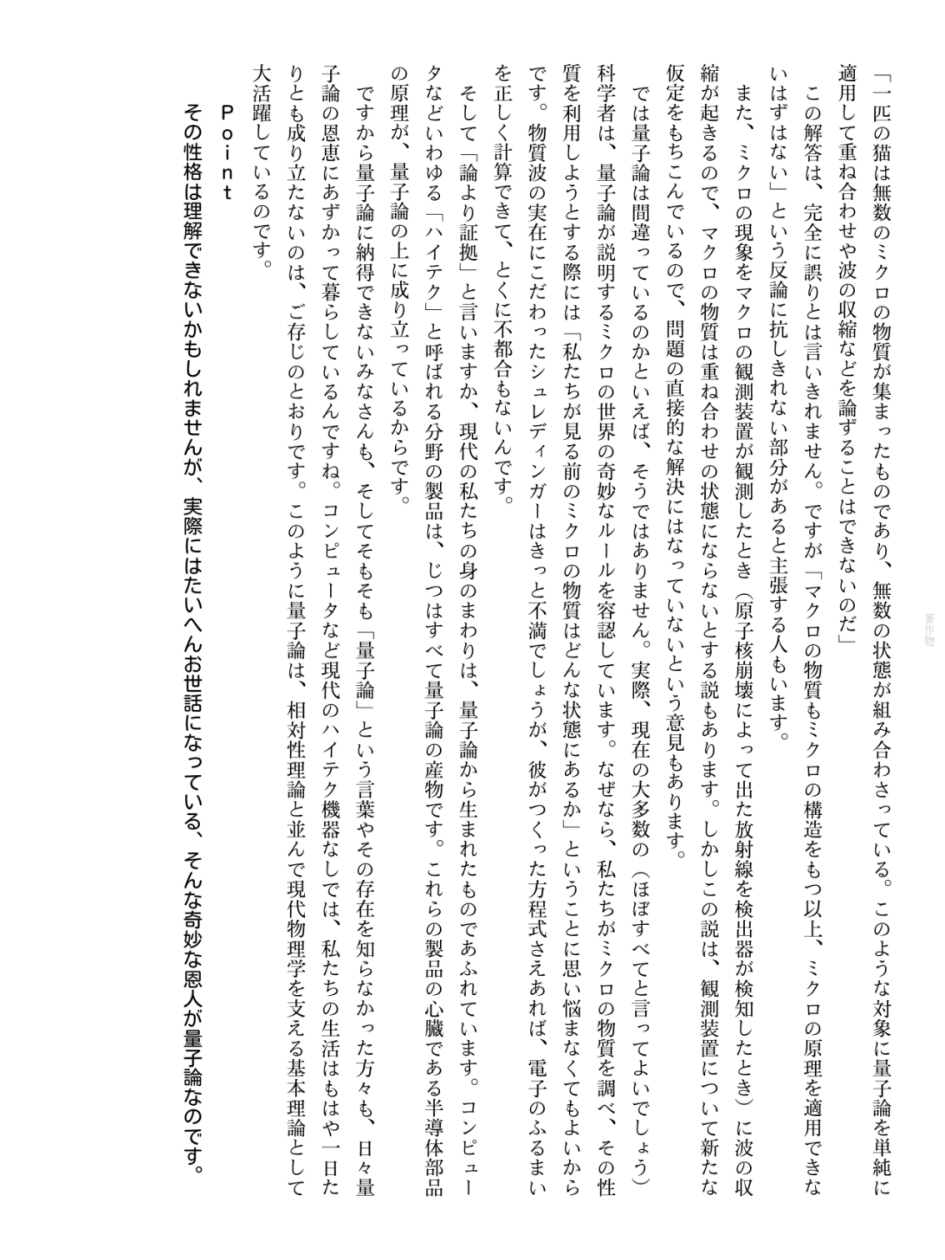 「一匹の猫は無数のミクロの物質が集まったものであり、無数の状態が組み合わさっている。このような対象に量子論を単純に
適用して重ね合わせや波の収縮などを論ずることはできないのだ」
この解答は、完全に誤りとは言いきれません。ですが「マクロの物質もミクロの構造をもつ以上、ミクロの原理を適用できな
いはずはない」という反論に抗しきれない部分があると主張する人もいます。
また、ミクロの現象をマクロの観測装置が観測したとき（原子核崩壊によって出た放射線を検出器が検知したとき）に波の収
縮が起きるので、マクロの物質は重ね合わせの状態にならないとする説もあります。しかしこの説は、観測装置について新たな
仮定をもちこんでいるので、問題の直接的な解決にはなっていないという意見もあります。
では量子論は間違っているのかといえば、そうではありません。実際、現在の大多数の（ほぼすべてと言ってよいでしょう）
科学者は、量子論が説明するミクロの世界の奇妙なルールを容認しています。なぜなら、私たちがミクロの物質を調べ、その性
質を利用しようとする際には「私たちが見る前のミクロの物質はどんな状態にあるか」ということに思い悩まなくてもよいから
です。物質波の実在にこだわったシュレディンガーはきっと不満でしょうが、彼がつくった方程式さえあれば、電子のふるまい
を正しく計算できて、とくに不都合もないんです。
そして「論より証拠」と言いますか、現代の私たちの身のまわりは、量子論から生まれたものであふれています。コンピュー
タなどいわゆる「ハイテク」と呼ばれる分野の製品は、じつはすべて量子論の産物です。これらの製品の心臓である半導体部品
の原理が、量子論の上に成り立っているからです。
ですから量子論に納得できないみなさんも、そしてそもそも「量子論」という言葉やその存在を知らなかった方々も、日々量
子論の恩恵にあずかって暮らしているんですね。コンピュータなど現代のハイテク機器なしでは、私たちの生活はもはや一日た
りとも成り立たないのは、ご存じのとおりです。このように量子論は、相対性理論と並んで現代物理学を支える基本理論として
大活躍しているのです。
Point
その性格は理解できないかもしれませんが、実際にはたいへんお世話になっている、そんな奇妙な恩人が量子論なのです。
著作物